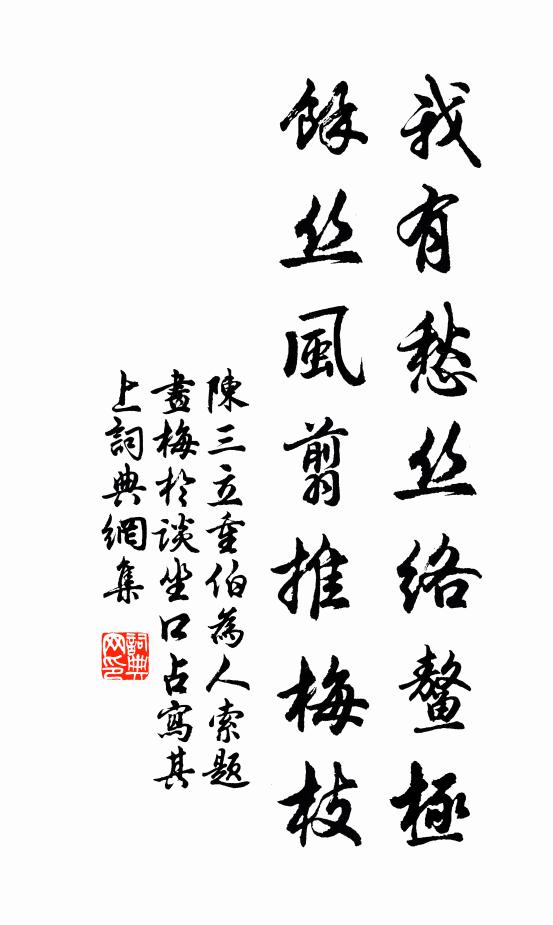 我有愁丝络鳌極
餘丝風剪推梅枝
陳三立重伯為人索題
畫梅於談坐口占寫其
上詞典網集
詞典
网印